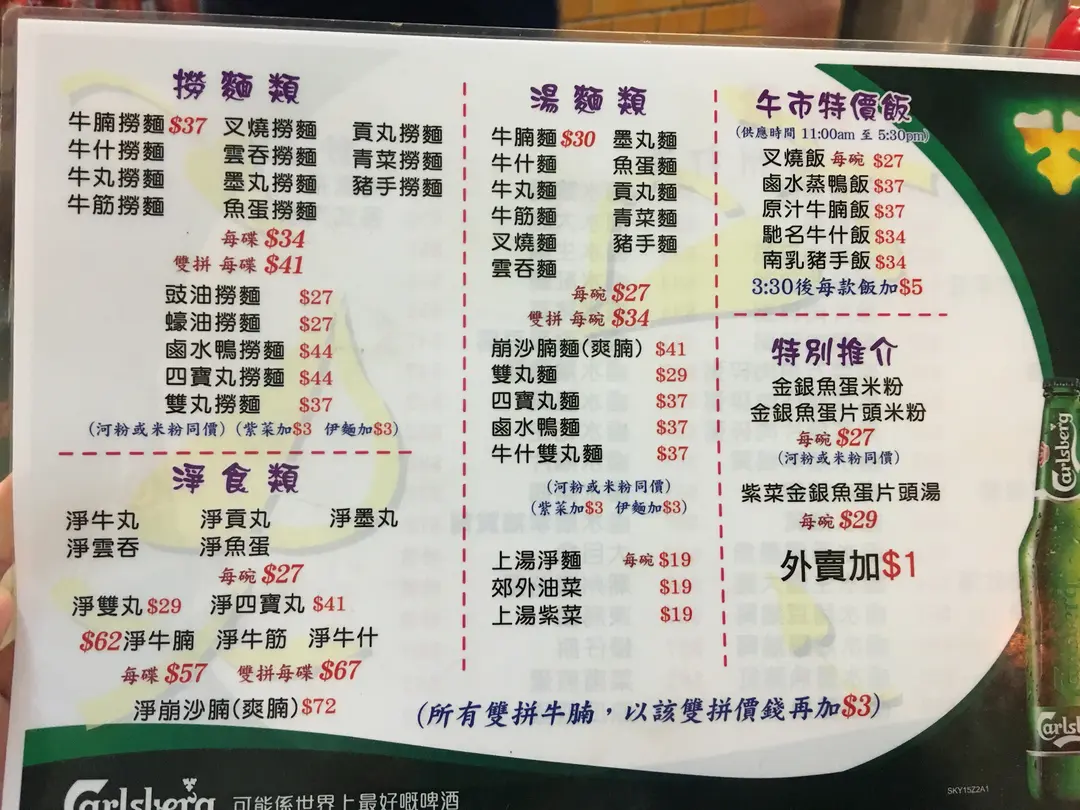 撈麵類
牛腩撈麵$37 叉燒撈麵 貢丸撈麵
牛什撈麵 雲吞撈麵 青菜撈麵
牛丸撈麵 墨丸撈麵 豬手撈麵
牛筋撈麵 魚蛋撈麵
每碟 $34
雙拼 每碟 $41
豉油撈麵 $27
蠔油撈麵 $27
鹵水鴨撈麵 $44
四寶丸撈麵 $44
雙丸撈麵 $37
(河粉或米粉同價) (紫菜加$3 伊麵加$3)
淨食類
淨牛丸 淨貢丸 淨墨丸
淨雲吞 淨魚蛋
每碗 $27
淨雙丸$29 淨四寶丸 $41
$62淨牛腩 淨牛筋 淨牛什
每碟 $57 雙拼每碟 $67
淨崩沙腩(爽腩)$72
湯麵類
牛腩麵$30 墨丸麵
牛什麵 魚蛋麵
牛丸麵 貢丸麵
牛筋麵 青菜麵
叉燒麵 豬手麵
雲吞麵
每碗 $27
雙拼 每碗 $34
崩沙腩麵(爽腩) $41
雙丸麵 $29
四寶丸麵 $37
鹵水鴨麵 $37
牛什雙丸麵 $37
(河粉或米粉同價)
(紫菜加$3 伊麵加$3)
上湯淨麵 每碗 $19
郊外油菜 $19
上湯紫菜 $19
午市特價飯
(供應時間 11:00am 至 5:30pm)
叉燒飯 每碗 $27
鹵水蒸鴨飯 $37
原汁牛腩飯 $37
馳名牛什飯 $34
南乳豬手飯 $34
3:30後每款飯加$5
特別推介
金銀魚蛋米粉
金銀魚蛋片頭米粉
每碗 $27
(河粉或米粉同價)
紫菜金銀魚蛋片頭湯
每碗 $29
外賣加$1
(所有雙拼牛腩，以該雙拼價錢再加$3)
Carlsberg
Carlsb
SKY15Z2A1
Carlsberg 可能係世界上最好嘅啤酒